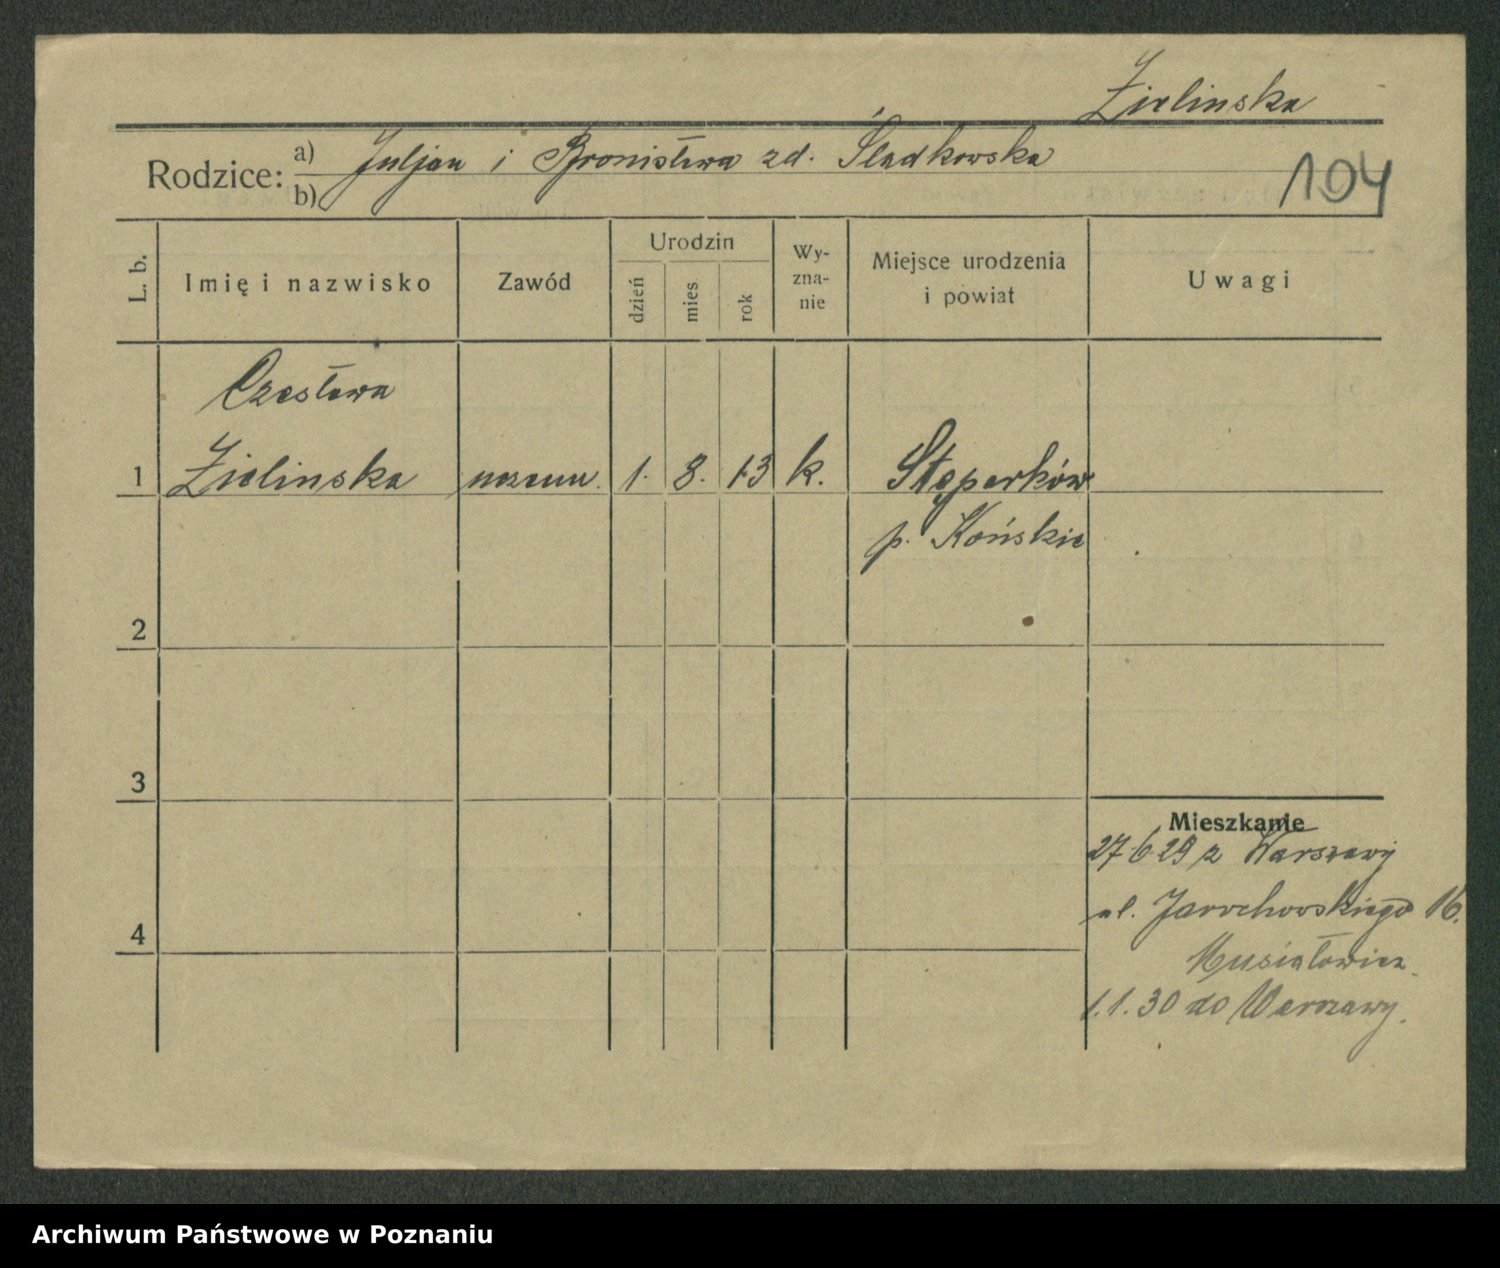 Zielinska
Rodzice: a) Juljan i Bronisława zd. Śladkowska
b)
104
L. b. Imię i nazwisko Zawód Urodzin dzień mies rok Wy-zna-nie Miejsce urodzenia i powiat Uwagi
Czesława
1 Zielinska uczenn. 1. 8. 13 k. Stąparków
p. Końskie
2
3
Mieszkanie
27 6 29 z Warszawy
ul. Jarochowskiego 16.
4
Musiałowicz
1.1.30 do Warszawy.
Archiwum Państwowe w Poznaniu